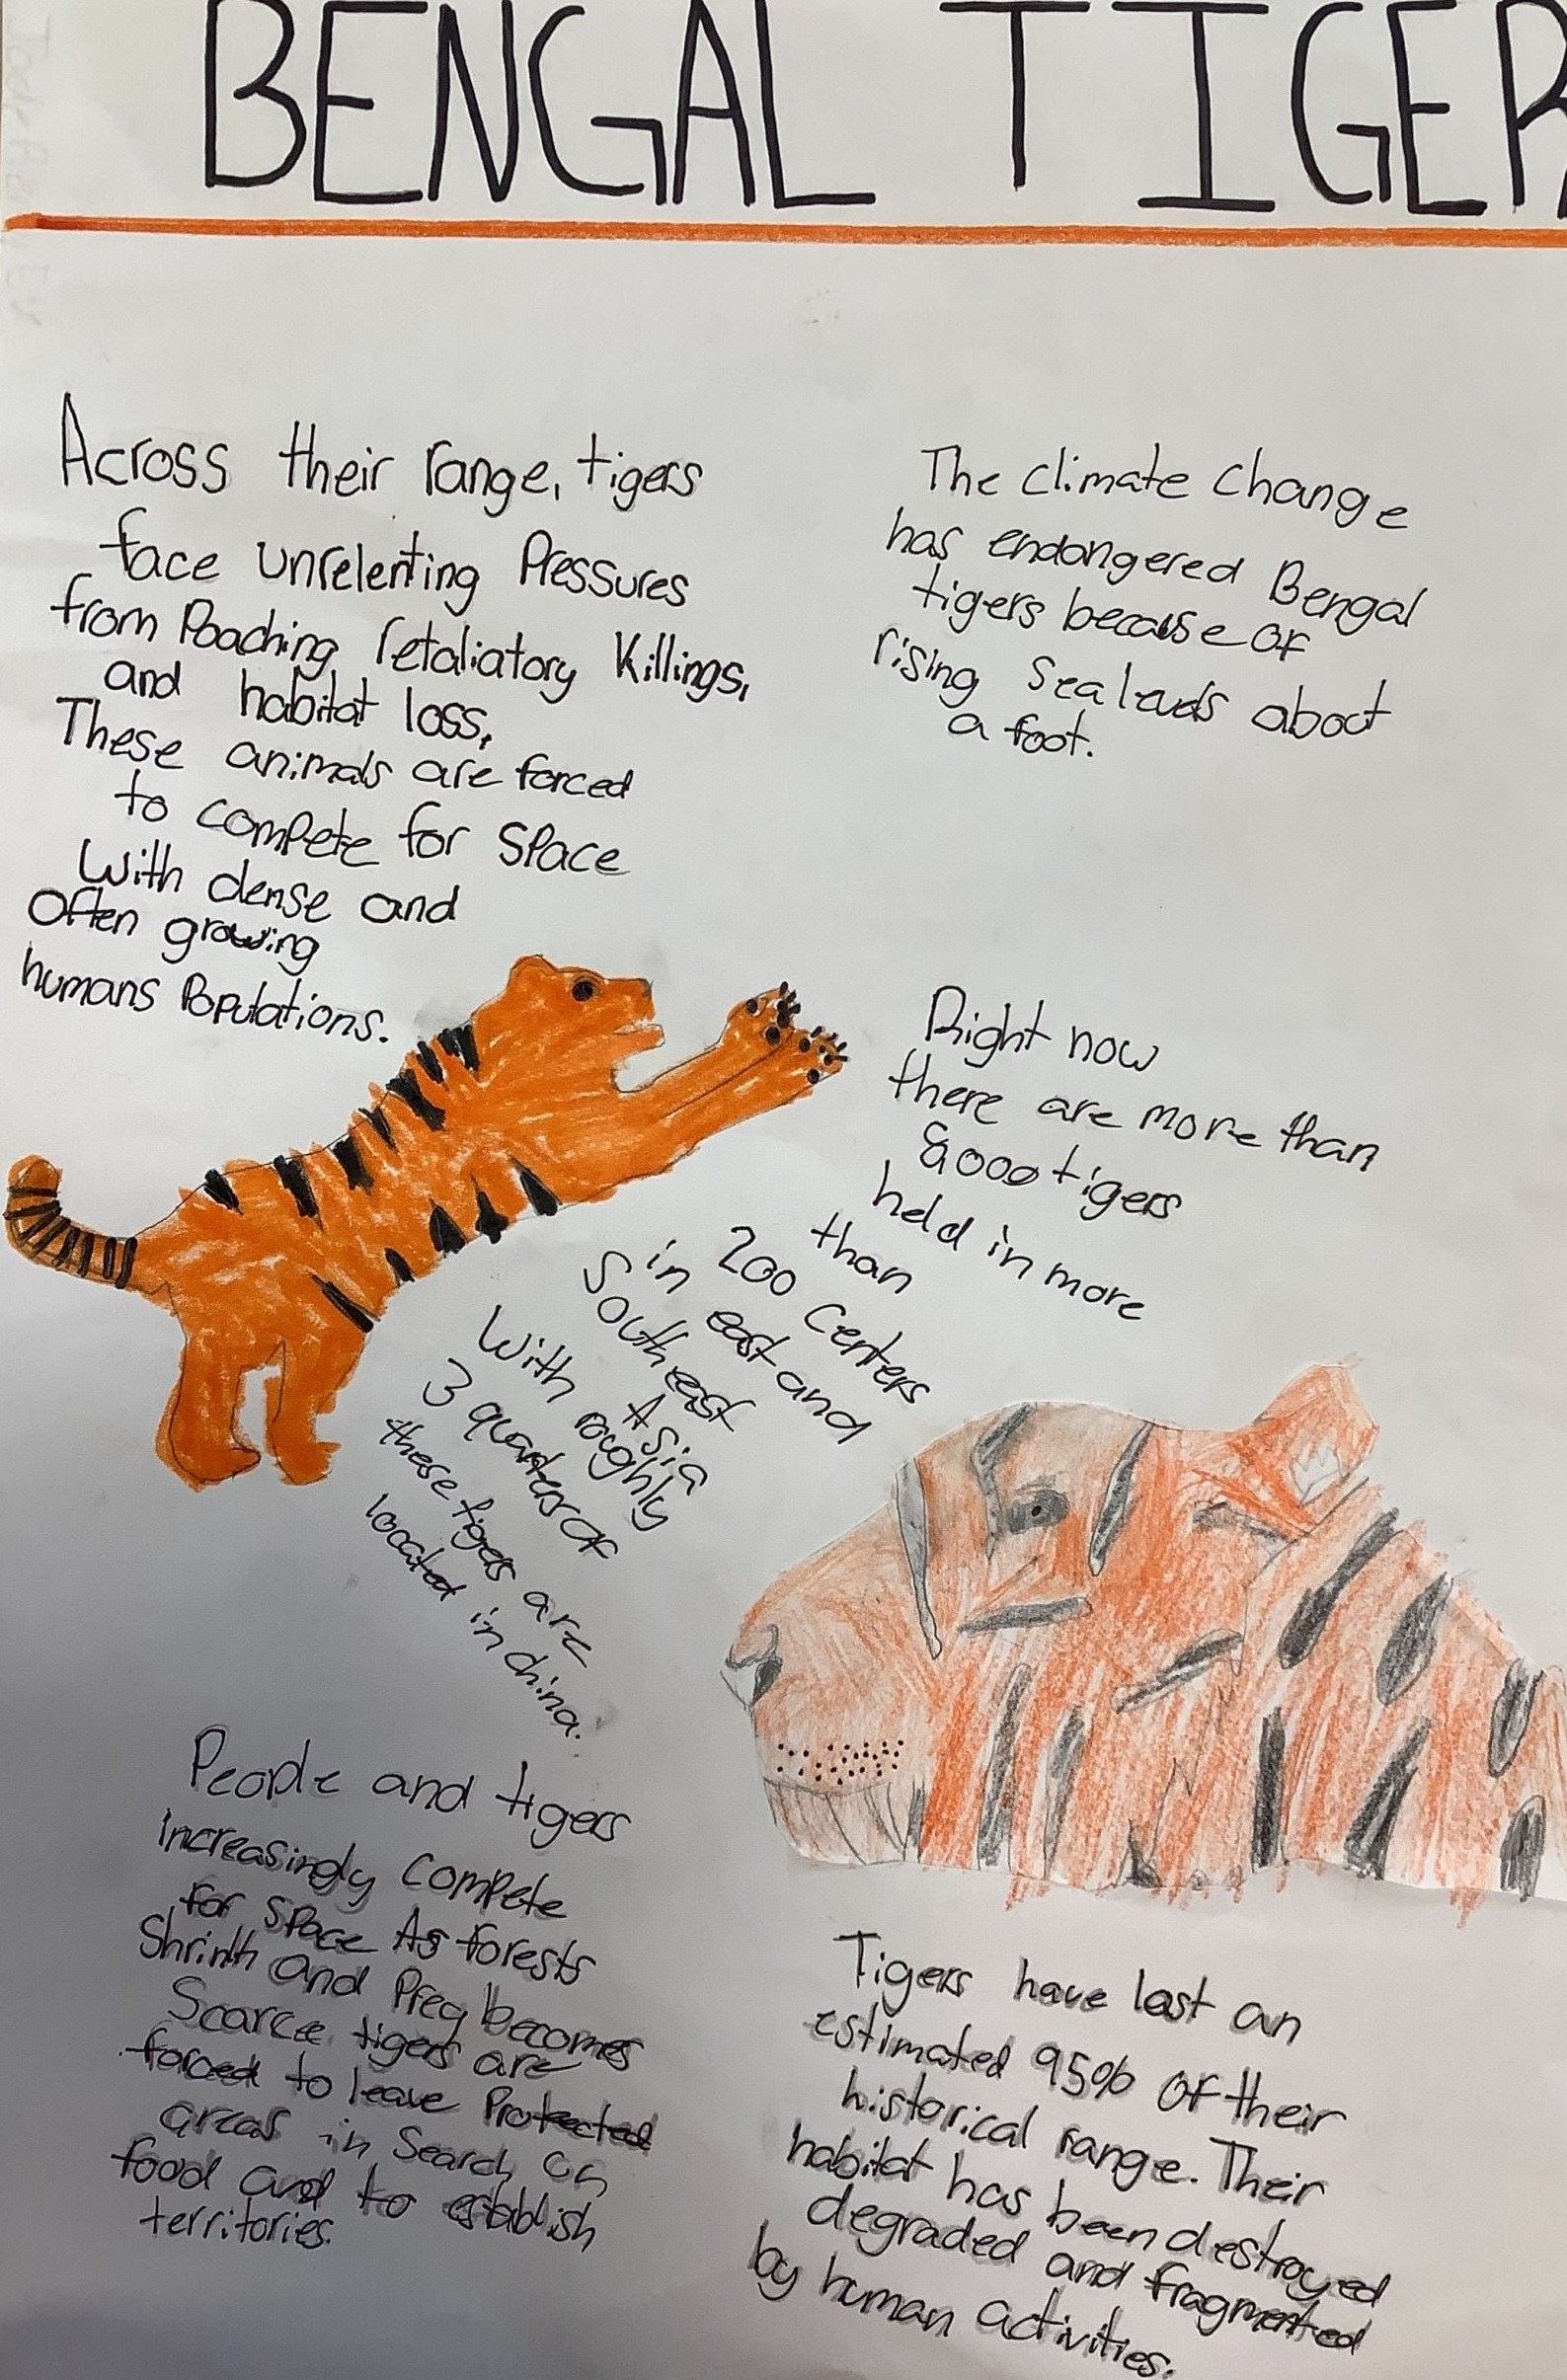 BENGAL TIGER
Across their range, tigers
face unrelenting Pressures
from Poaching, retaliatory Killings,
and habitat loss,
These animals are forced
to compete for Space
With dense and
Often growing
humans Populations.
The climate change
has endangered Bengal
tigers because OF
rising sea levels about
a foot.
Right now
there are more than
8000 tigers
held in more
than
200 Centers
in east and
South east
Asia
With roughly
3 quarters OF
these tigers are
located in china.
People and tigers
increasingly compete
for space As forests
Shrink and Prey becomes
Scarce. tigers are
forced to leave Protected
areas in Search On
food and to establish
territories.
Tigers have lost an
estimated 95% OF their
historical range. Their
habitat has been destroyed
degraded and fragmented
by human activities.